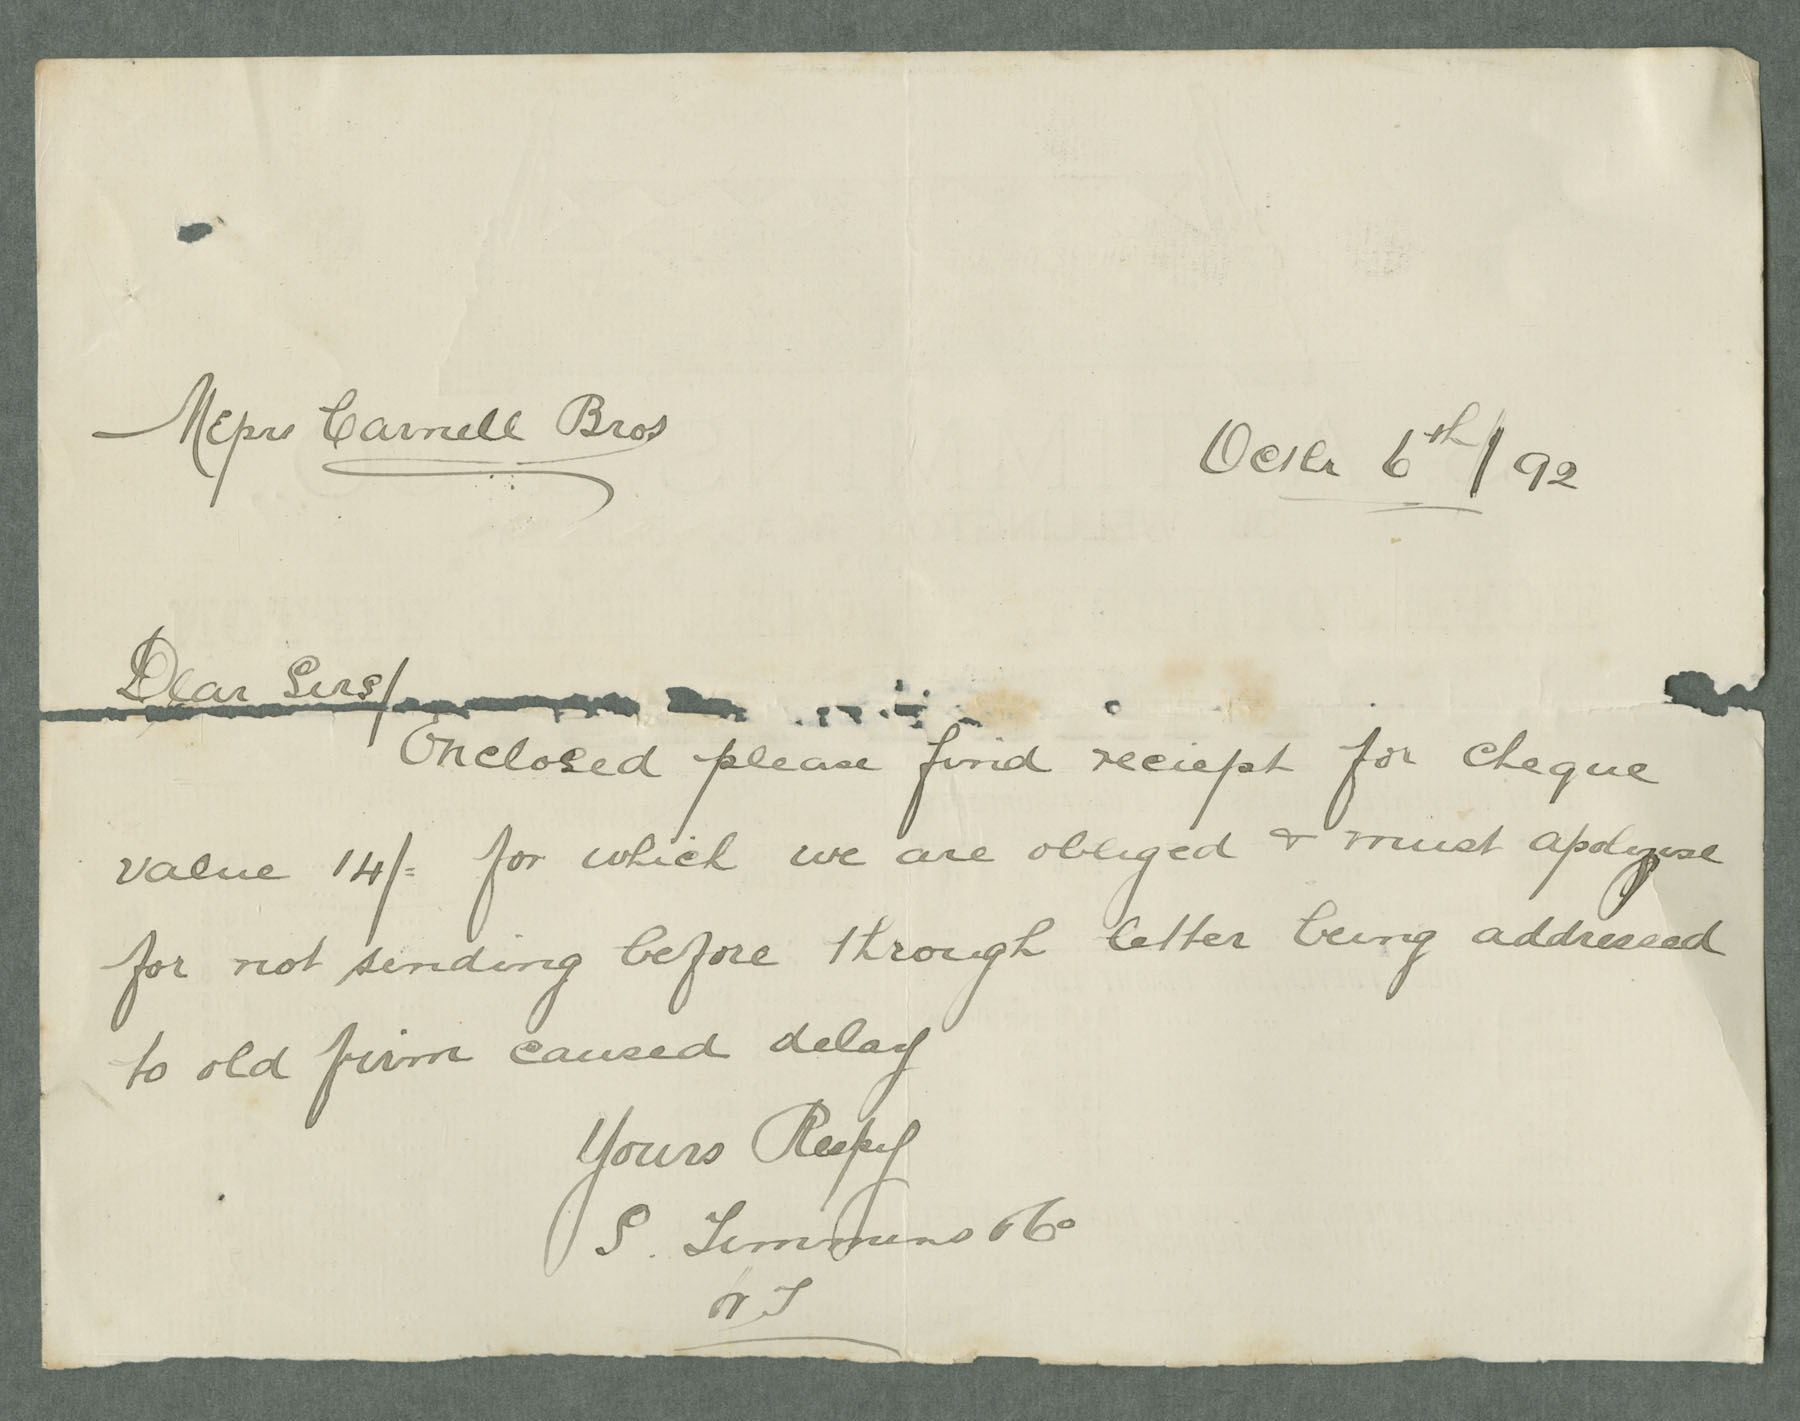 Messrs Carnell Bros
Octbr 6th/92
Dear Sirs/
Enclosed please find reciept for cheque
value 14/= for which we are obliged & must apologise
for not sending before through letter being addressed
to old firm caused delay
Yours Respy
S. Timmins & Co